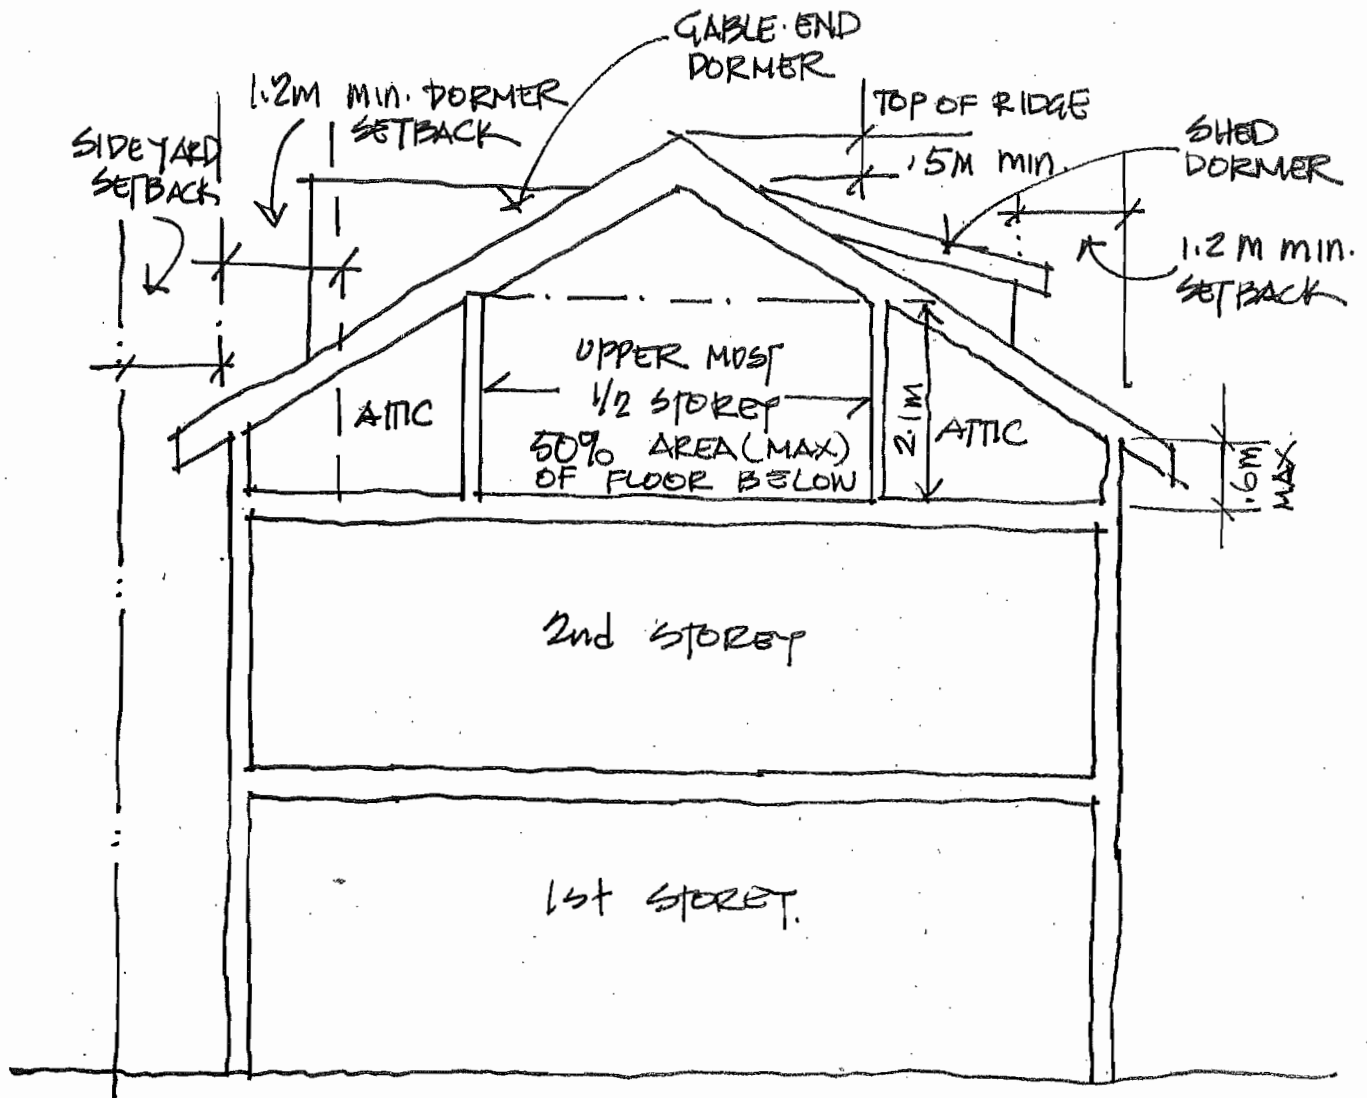 GABLE-END
DORMER
1.2m min. DORMER
SETBACK
SIDEYARD
SETBACK
TOP OF RIDGE
.5M min.
SHED
DORMER
1.2 M min.
SETBACK
UPPER MOST
1/2 STOREY
50% AREA (MAX)
OF FLOOR BELOW
ATTIC
2.1M
ATTIC
.6M
MAX
2nd STOREY
1st STOREY.